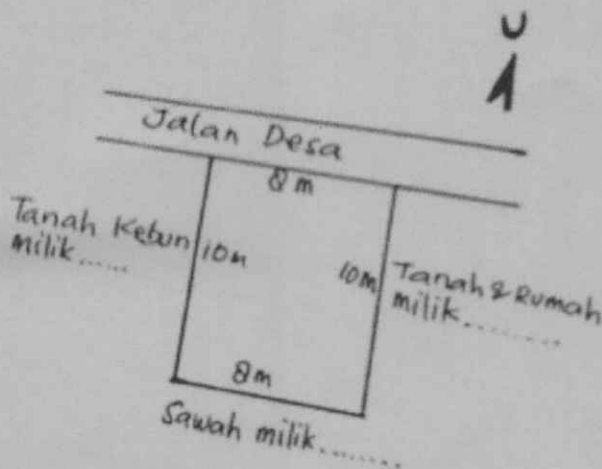 U
Jalan Desa
8 m
Tanah Kebun
milik......
10m
10m
Tanah & Rumah
milik.........
8m
Sawah milik........